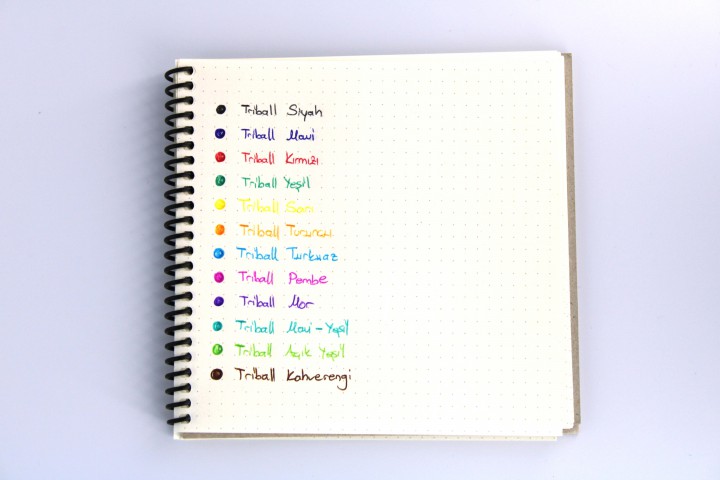 Triball Siyah
Triball Mavi
Triball Kırmızı
Triball Yeşil
Triball Sarı
Triball Turuncu
Triball Turkuaz
Triball Pembe
Triball Mor
Triball Mavi-Yeşil
Triball Açık Yeşil
Triball Kahverengi